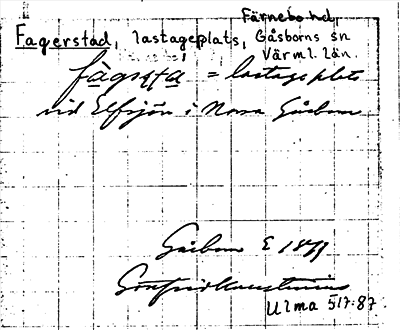 Färnebo hd,
Fagerstad, lastageplats, Gåsborns sn
Värml. län.
= lastageplats
vid Elfsjön i Norra Gåsborn
Gåsborn E 1879
Ulma 517:87.